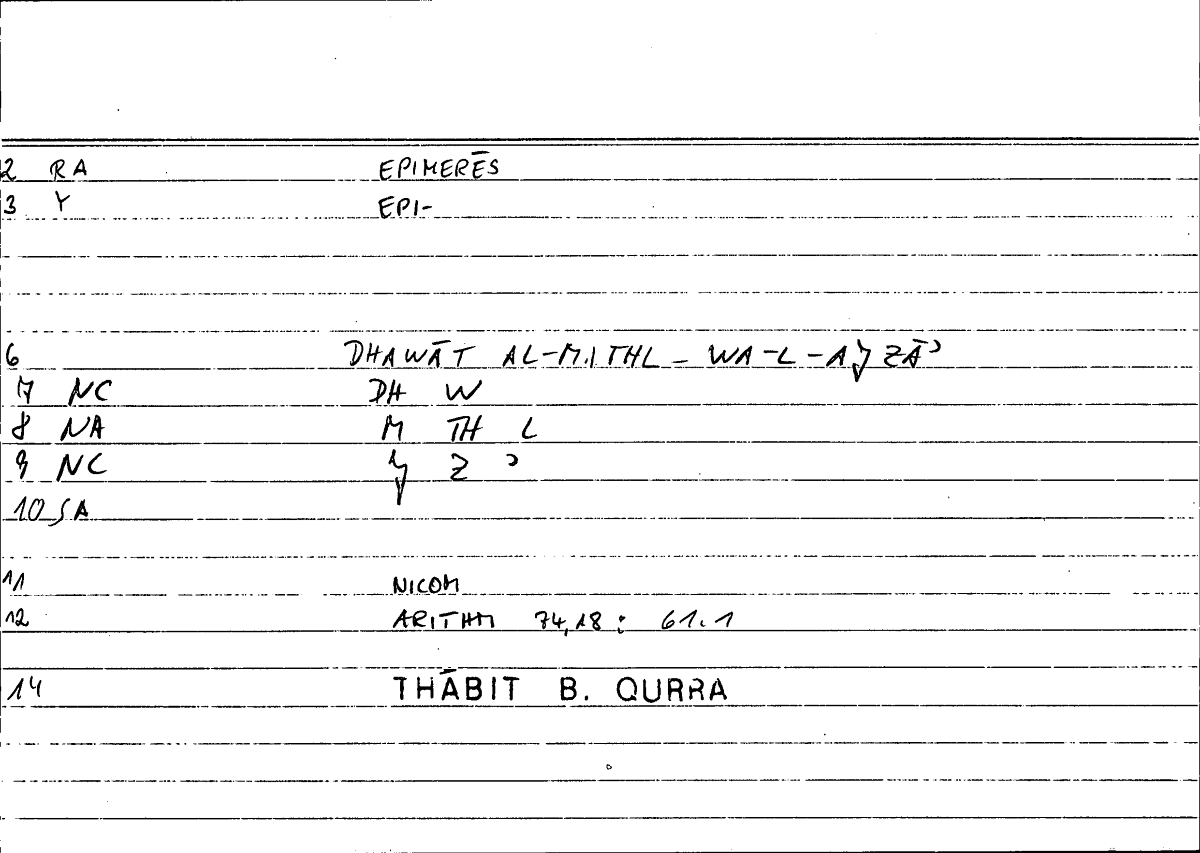 2 RA EPIMERĒS
3 Y EPI-
6 DHAWĀT AL-MITHL-WA-L-AJZĀʾ
7 NC DH W
8 NA M TH L
9 NC J Z ʾ
10 SA
11 NICOM
12 ARITHM 74,18 : 61.1
14 THĀBIT B. QURRA